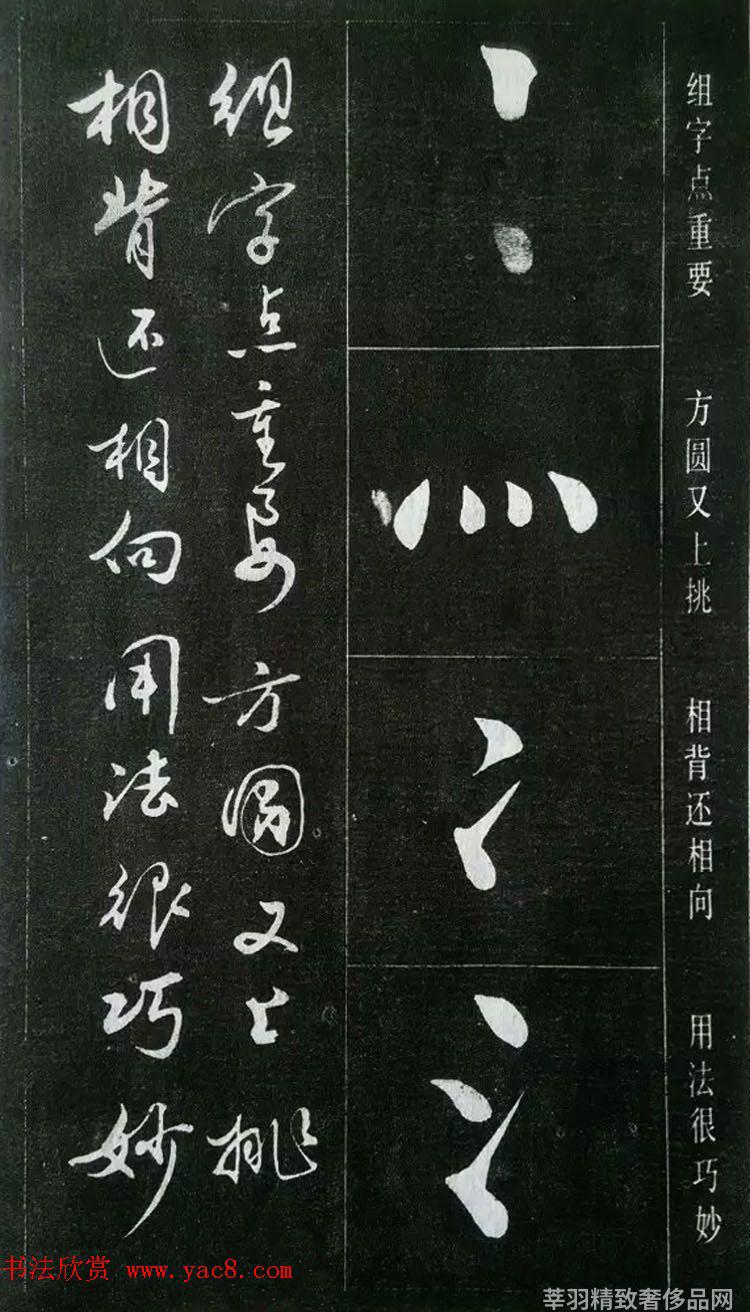 组字点重要 方圆又上挑 相背还相向 用法很巧妙
组字点重要方圆又上挑
相背还相向用法很巧妙
书法欣赏 www.yac8.com
莘羽精致奢侈品网